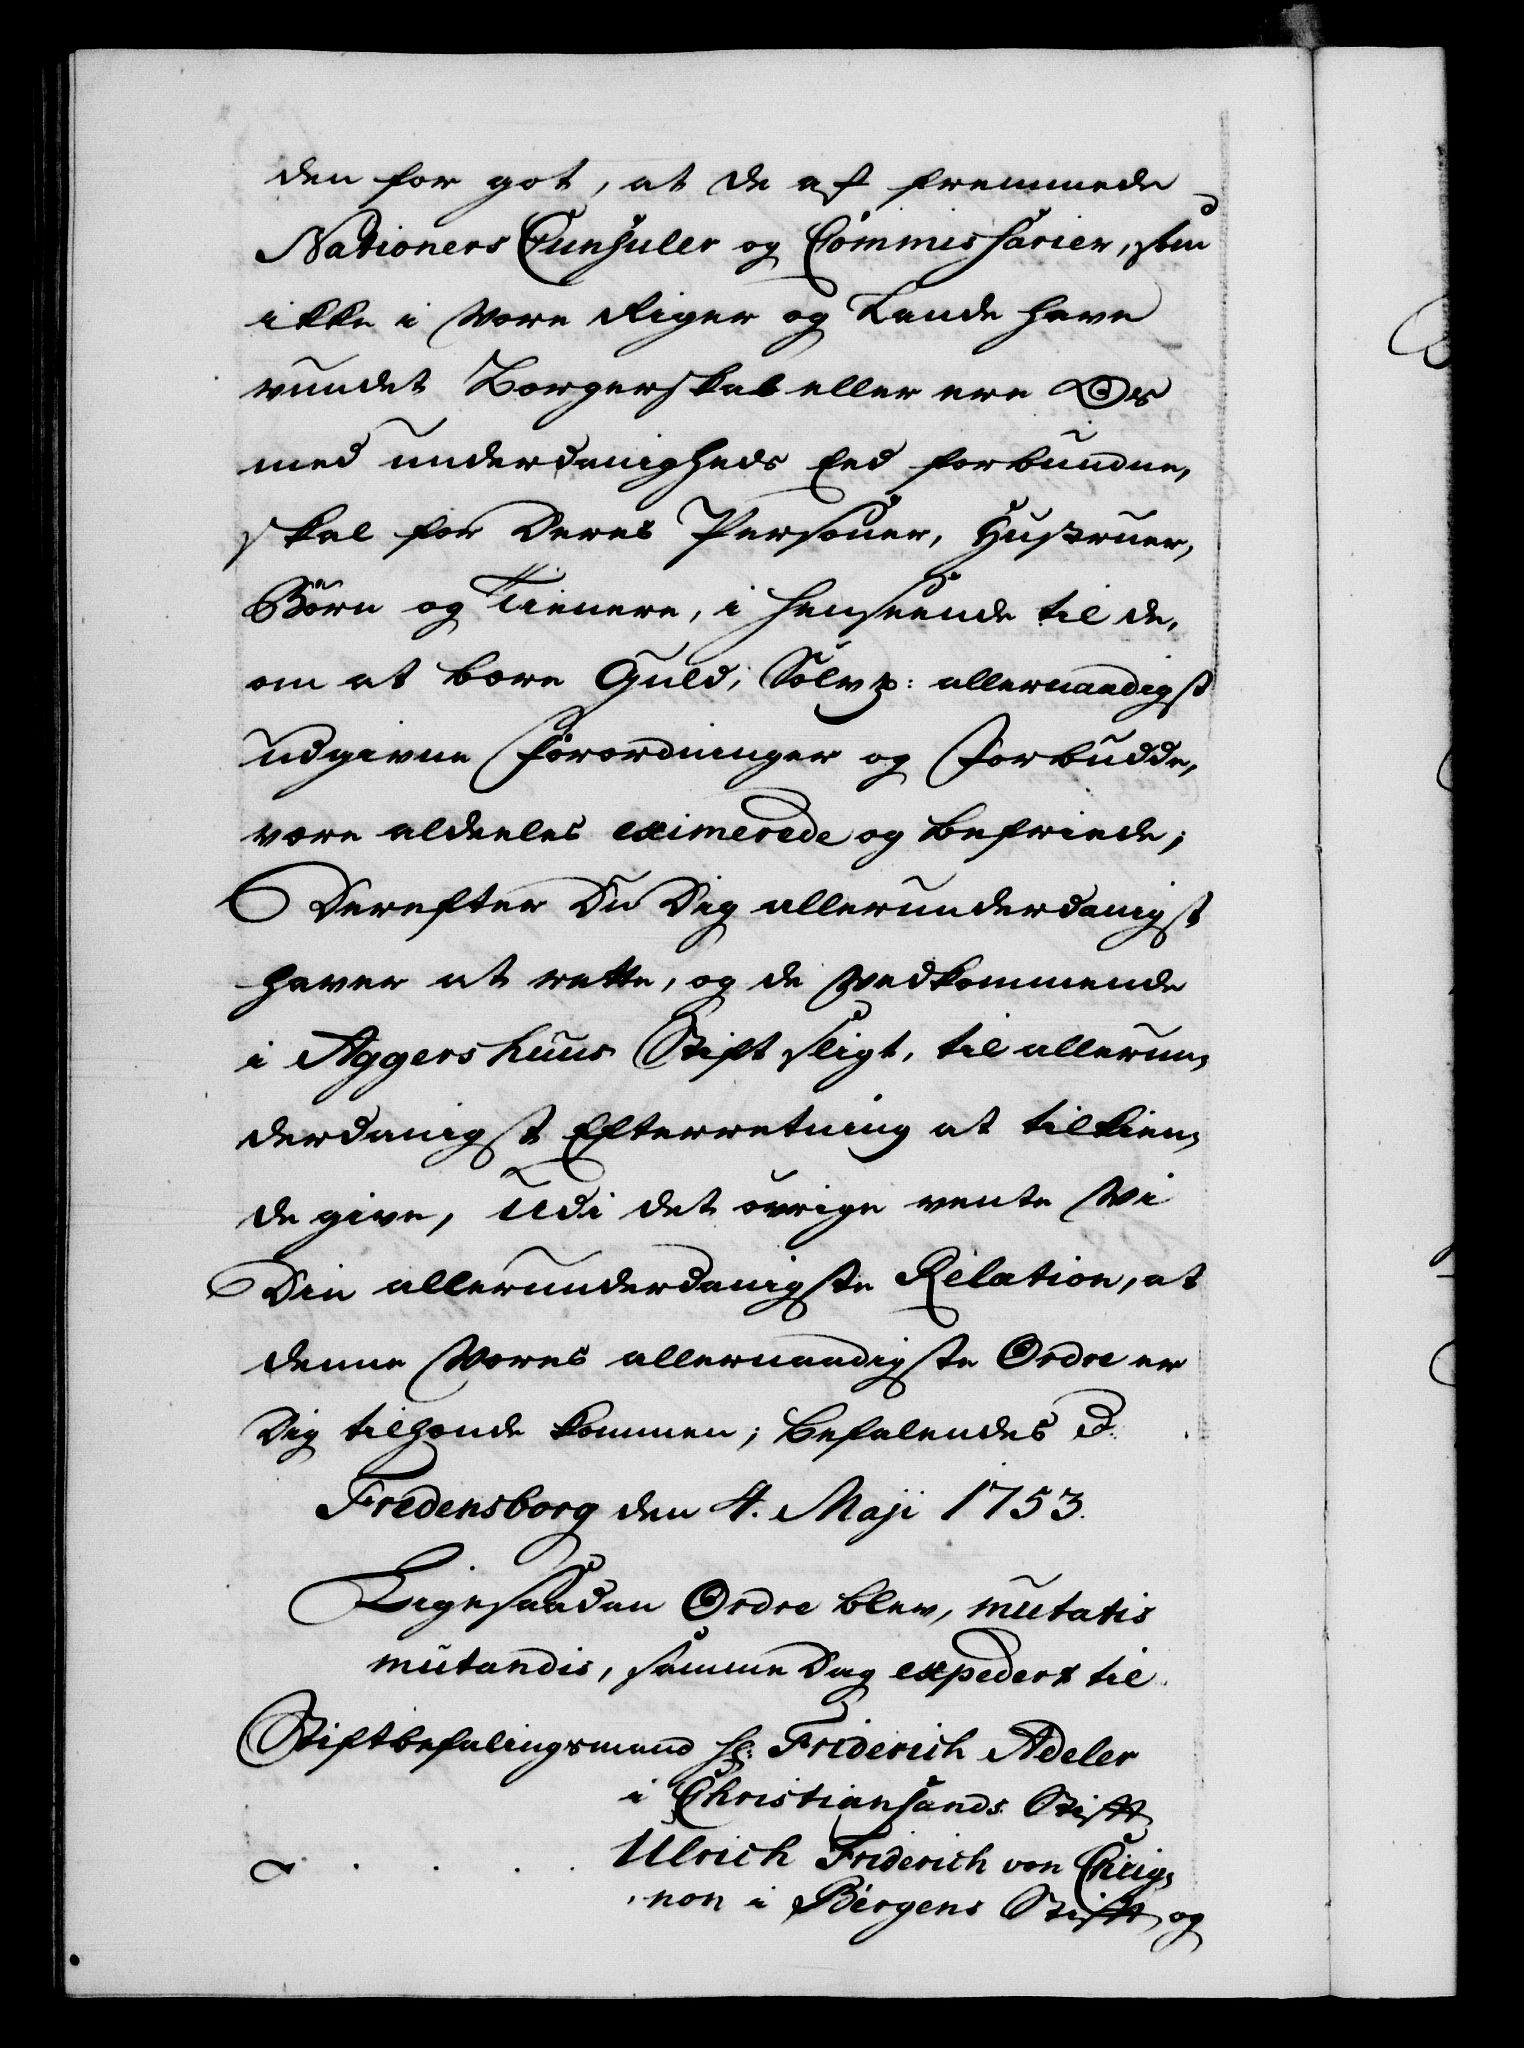 den for got, at de af fremmede
Nationers Consuler og Commissarier, som
ikke i Vore Riger og Lande have
vundet Borgerskab eller ere Os
med underdanigheds Eed forbundne,
skal for Deres Personer, Hustruer,
Börn og Tienere, i henseende til de,
om at bære Guld, Sölv p: allernaadigst
udgivne Forordninger og Forbudde,
være aldeeles eximerede og befriede;
Derefter Du Dig allerunderdanigst
haver at rette, og de Vedkommende
i Aggershuus Stift sligt, til allerun,
derdanigst Efterretning at tilkien,
de give, Udi det övrige vente Vi
Din allerunderdanigste Relation, at
denne Vores allernaadigste Ordre er
Dig tilhænde kommen; Befalendes d.
Fredensborg den 4. Maji 1753.
Ligesaadan Ordre blev, mutatis
mutandis, samme Dag expedert til
Stiftbefalingsmand Hr: Friderich Adeler
i Christiansands Stift,
Ulrich Friderich von Cicig,
non i Bergens Stift, og